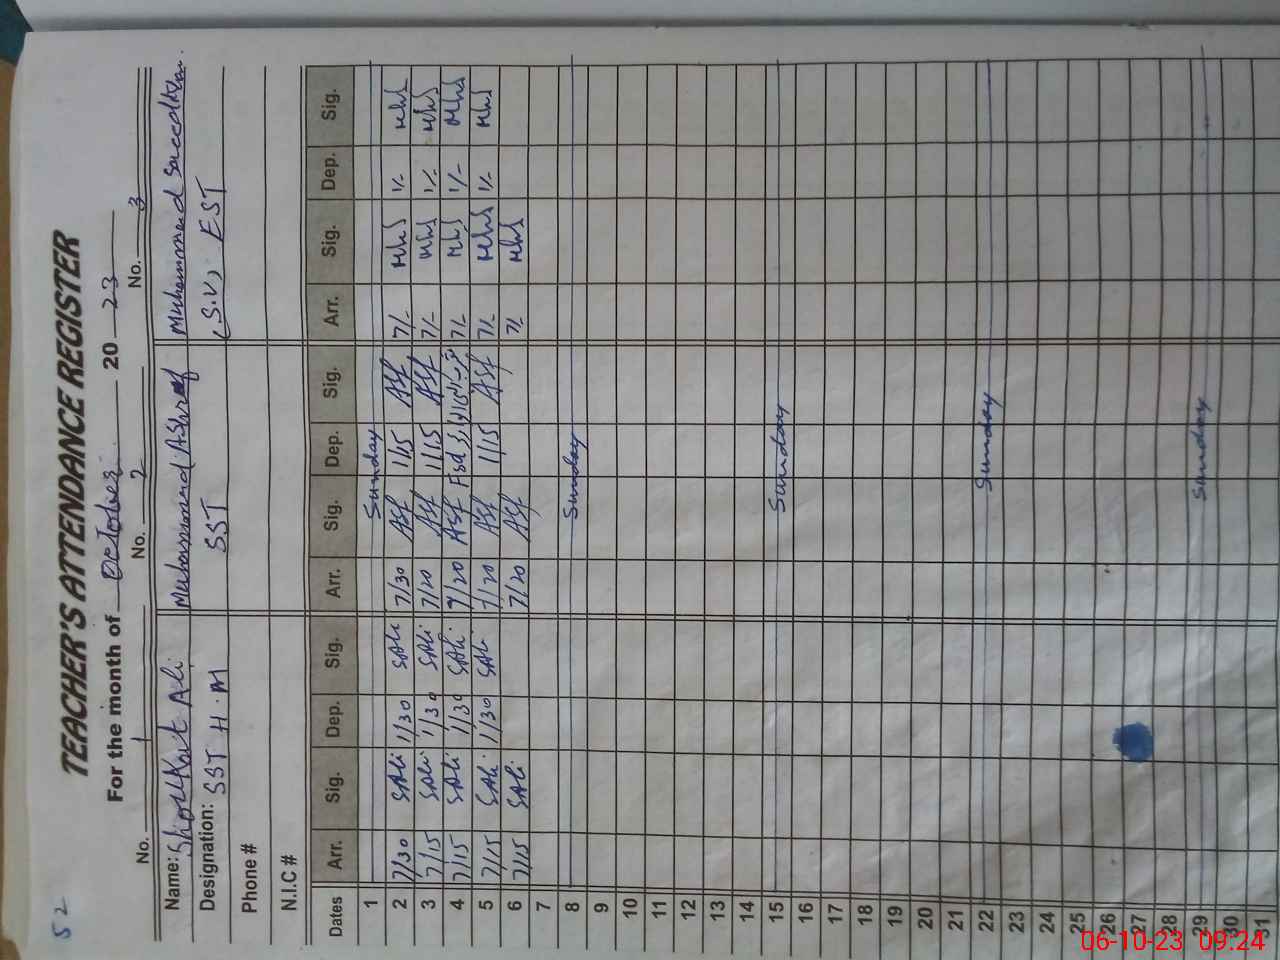 52
TEACHER'S ATTENDANCE REGISTER
For the month of October 20 23
No. 1 No. 2 No. 3
Name: Shoukat Ali Muhammad Ashraf Muhammad
Designation: SST H.M SST (S.V, EST
Phone #
N.I.C #
Dates Arr. Sig. Dep. Sig. Arr. Sig. Dep. Sig. Arr. Sig. Dep. Sig.
1 Sunday
2 7/30 SAli 1/30 SAli 7/30 Asf 1/15 Asf 7/- 1/-
3 7/15 SAli 1/30 SAli 7/20 Asf 1/15 Asf 7/- 1/-
4 7/15 SAli 1/30 SAli 7/20 Asf 7/- 1/-
5 7/15 SAli 1/30 SAli 7/20 Asf 1/15 Asf 7/- 1/-
6 7/15 SAli 7/20 Asf 7/-
7
8 Sunday
9
10
11
12
13
14
15 Sunday
16
17
18
19
20
21
22 Sunday
23
24
25
26
27
28
29 Sunday
30
31
06-10-23 09:24